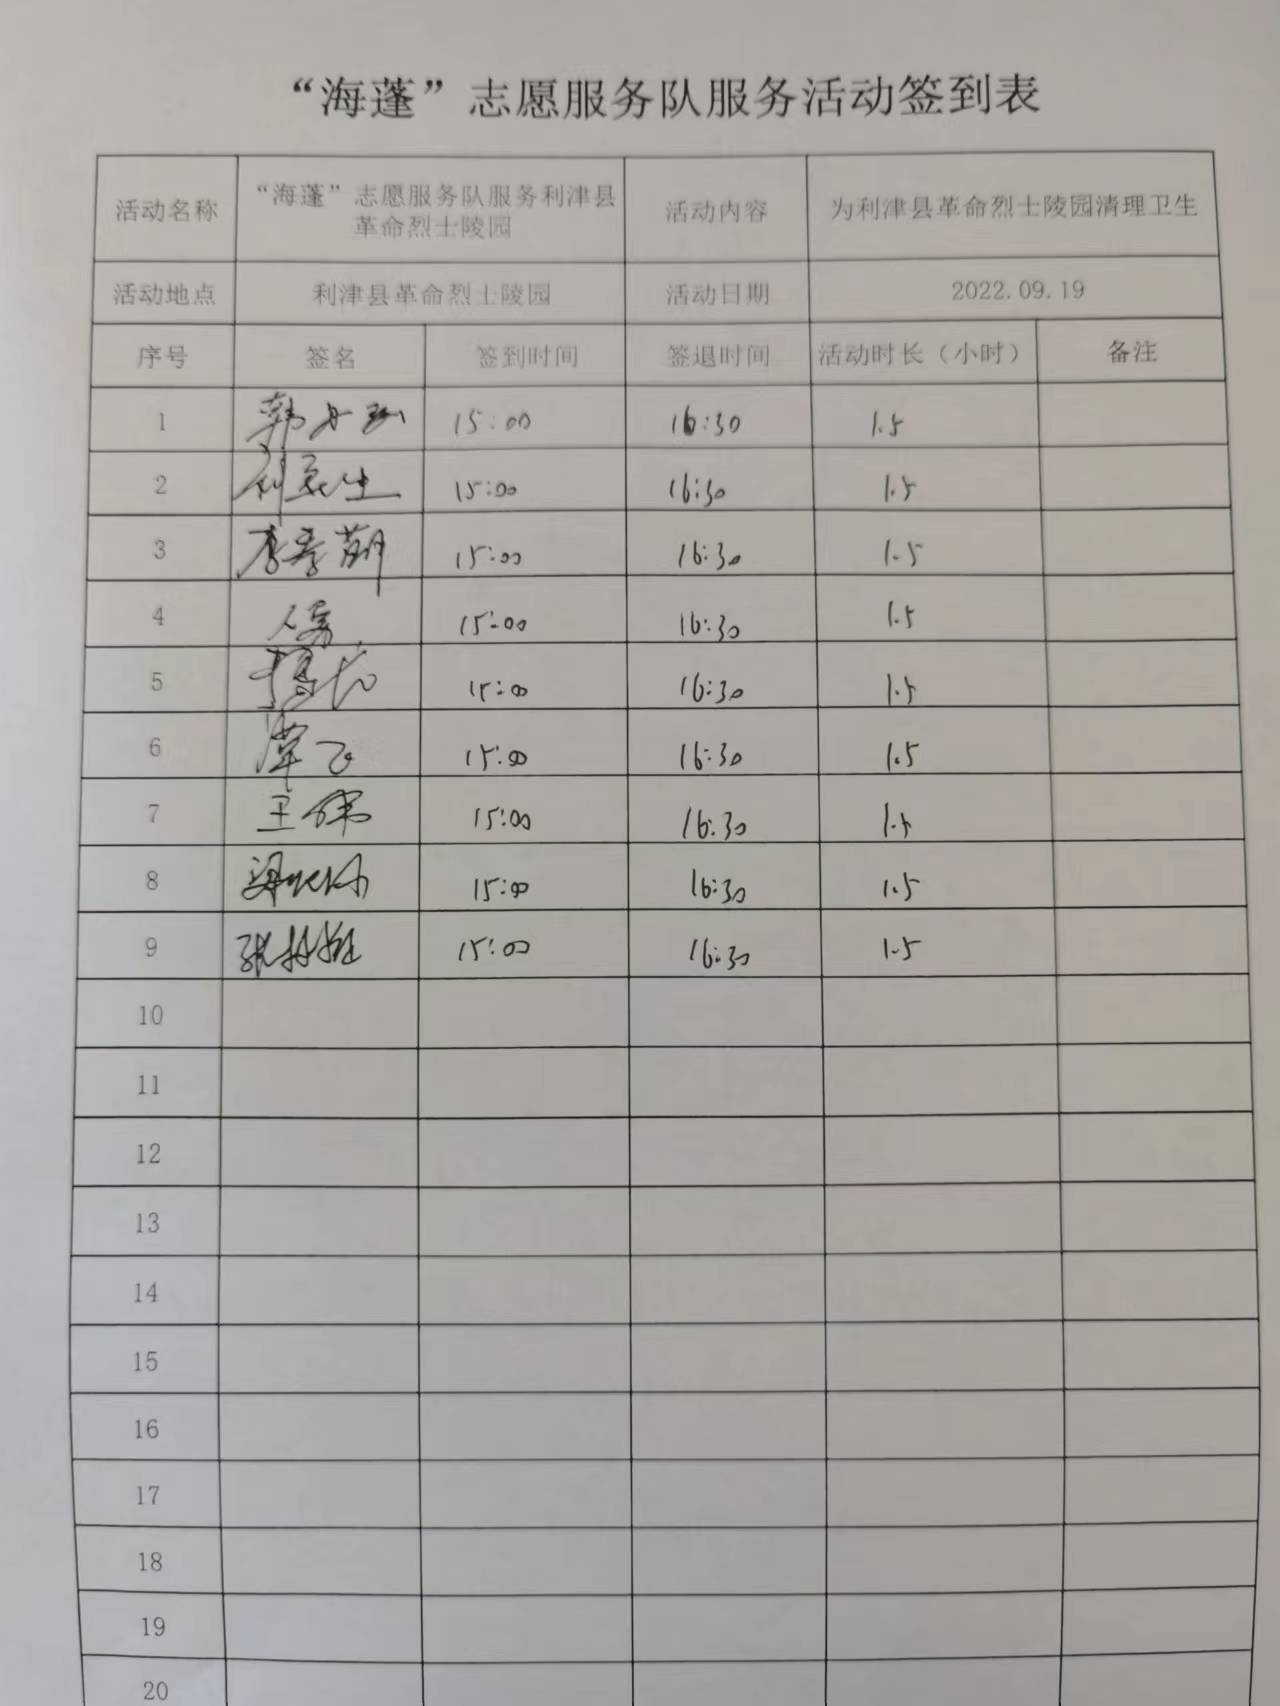 “海蓬”志愿服务队服务活动签到表
活动名称 “海蓬”志愿服务队服务利津县革命烈士陵园 活动内容 为利津县革命烈士陵园清理卫生
活动地点 利津县革命烈士陵园 活动日期 2022.09.19
序号 签名 签到时间 签退时间 活动时长（小时） 备注
1 15:00 16:30 1.5
2 15:00 16:30 1.5
3 15:00 16:30 1.5
4 15:00 16:30 1.5
5 15:00 16:30 1.5
6 15:00 16:30 1.5
7 王伟 15:00 16:30 1.5
8 15:00 16:30 1.5
9 15:00 16:30 1.5
10
11
12
13
14
15
16
17
18
19
20